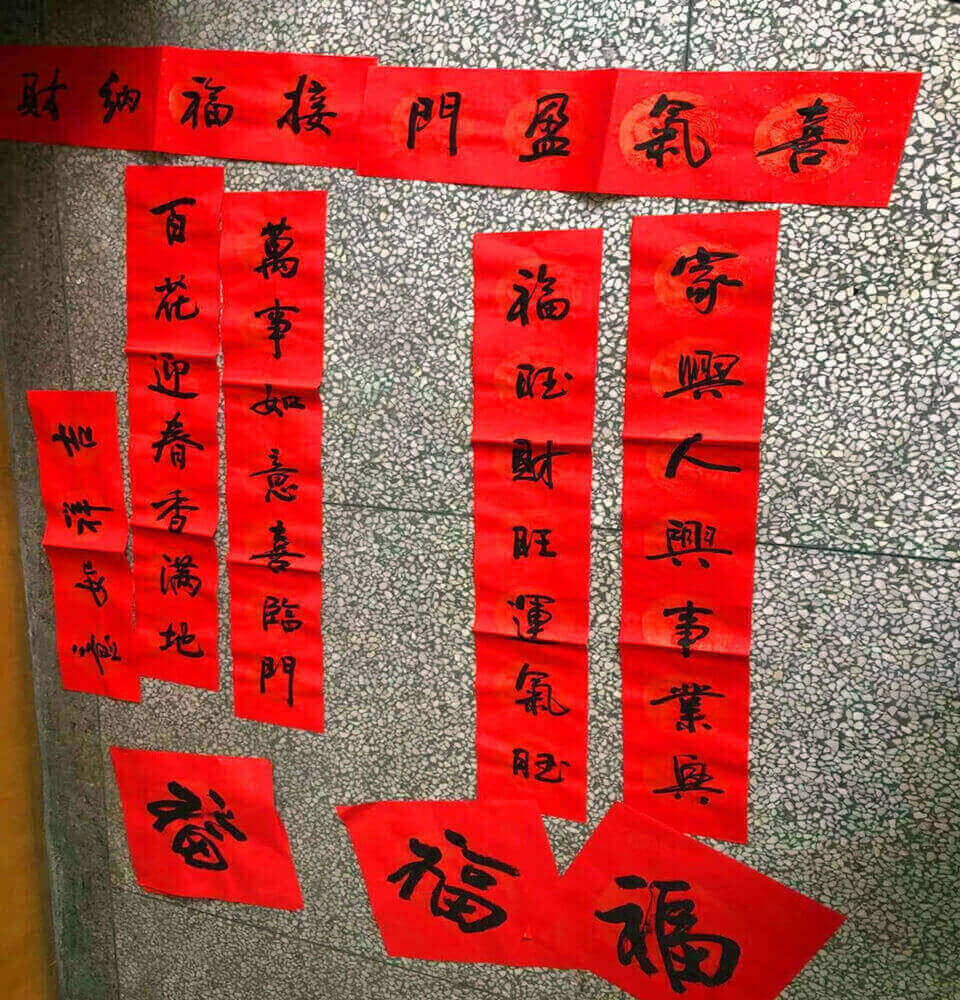 喜氣盈門
接福纳財
家興人興事業興
福旺財旺運氣旺
萬事如意喜臨門
百花迎春香满地
吉祥如意
福
福
福